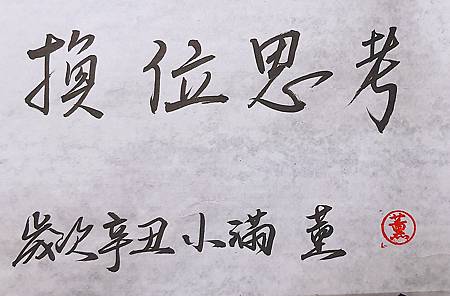 換位思考
歲次辛丑小滿 薰 薰